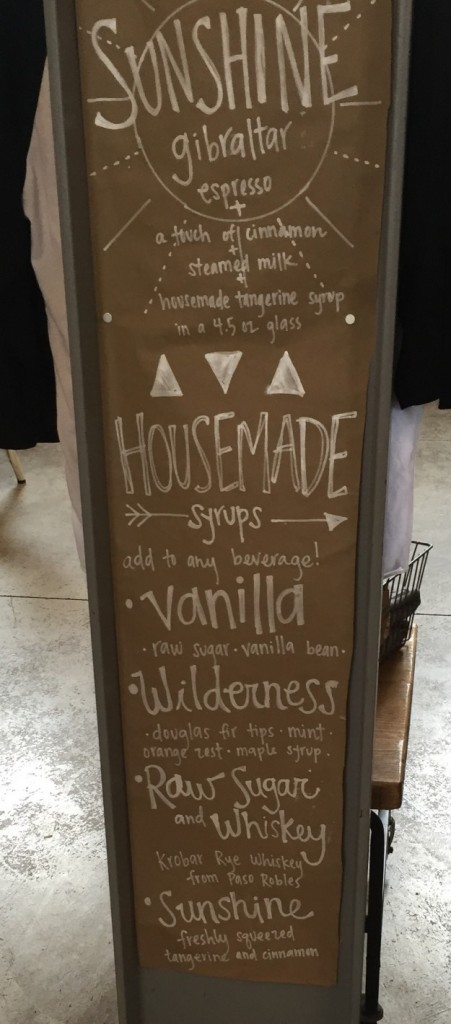 SUNSHINE
gibraltar
espresso
+
a touch of cinnamon
+
steamed milk
+
housemade tangerine syrup
in a 4.5 oz glass
HOUSEMADE
syrups
add to any beverage!
• Vanilla
• raw sugar • vanilla bean •
• Wilderness
• douglas fir tips • mint •
orange zest • maple syrup •
• Raw Sugar
and Whiskey
Krobar Rye Whiskey
from Paso Robles
• Sunshine
freshly squeezed
tangerine and cinnamon